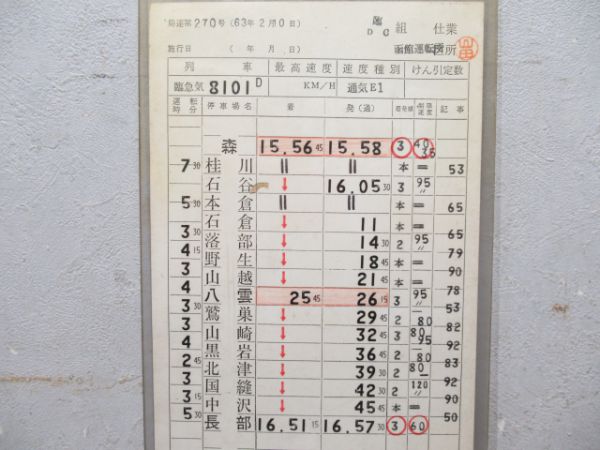 局運第270号(63年2月0日) 臨 DC 組 仕業
施行日 ( 年 月 日) 函館運転所
列車 最高速度 速度種別 けん引定数
臨急気 8101D KM/H 通気E1
運転時分 停車場名 着 発(通) 着発線 制限速度 記事
森 15.56 45 15.58 3 40 35
7 30 桂川 〃 〃 本 = 53
石谷 ↓ 16.05 30 3 95 〃
5 30 本倉 〃 〃 本 = 65
石倉 ↓ 11 本 = 65
3 30 落部 ↓ 14 30 2 95 〃
4 15 野生 ↓ 18 45 本 = 79
3 山越 ↓ 21 45 本 = 90
4 30 八雲 25 45 26 15 3 95 〃 78
3 30 鷲巣 ↓ 29 45 2 80 53
3 山崎 ↓ 32 45 3 80 95 82
4 黒岩 ↓ 36 45 2 80 92
2 45 北津 ↓ 39 30 2 80 83
3 国縫 ↓ 42 30 2 120 〃 92
3 15 中沢 ↓ 45 45 本 = 90
5 30 長部 16.51 15 16.57 30 3 60 50